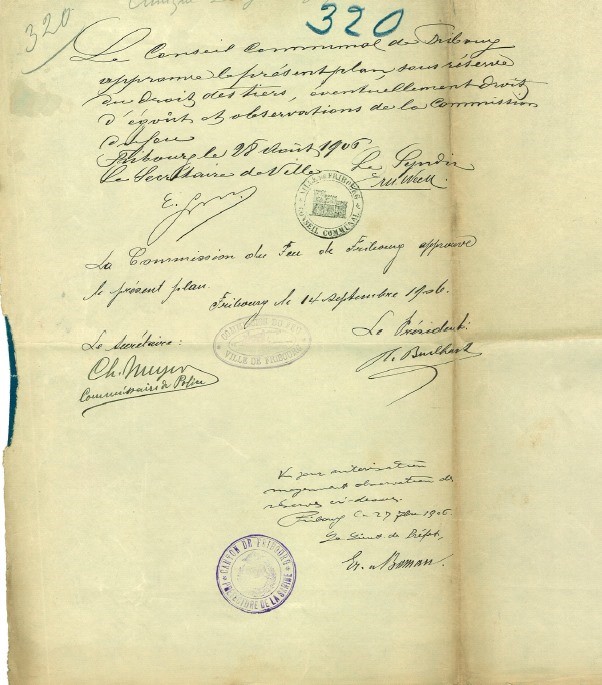 320
320
Le Conseil Communal de Fribourg
approuve le présent plan sous réserve
du droit des tiers, éventuellement droit
d'égoût et observations de la Commission
du feu
Fribourg le 28 Août 1906
Le Secrétaire de Ville Le Syndic
VILLE DE FRIBOURG
CONSEIL COMMUNAL
La Commission du Feu de Fribourg approuve
le présent plan.
Fribourg le 14 septembre 1906.
Le Président:
Le secrétaire:
COMMISSION DU FEU
VILLE DE FRIBOURG
Ch. Meyer
Commissaire de Police
Vu pour autorisation
moyennant observation des
réserves ci-dessus.
Fribourg le 27 1906.
Le Lieut. de Préfet,
CANTON DE FRIBOURG
PRÉFECTURE DE LA SARINE